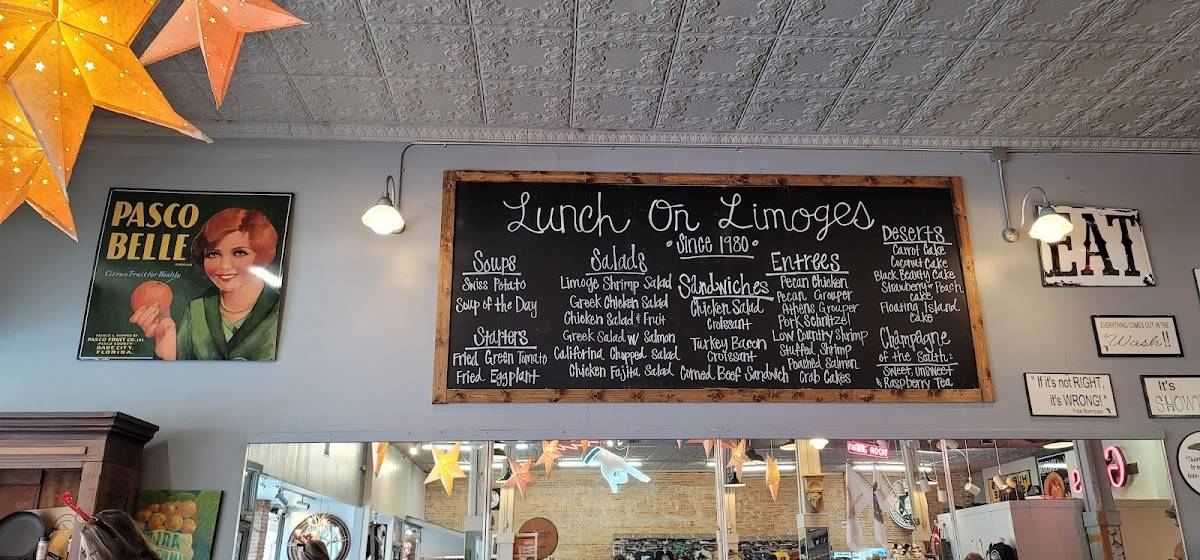 PASCO
BELLE
BRAND
Citrus Fruit for Health
PACKED & SHIPPED BY
PASCO FRUIT CO., INC.
PASCO COUNTY
DADE CITY,
FLORIDA.
Lunch On Limoges
Since 1980
Soups
Swiss Potato
Soup of the Day
Starters
Fried Green Tomato
Fried Eggplant
Salads
Limoge Shrimp Salad
Greek Chicken Salad
Chicken Salad & Fruit
Greek Salad w/ Salmon
California Chopped Salad
Chicken Fajita Salad
Sandwiches
Chicken Salad
Croissant
Turkey Bacon
Croissant
Corned Beef Sandwich
Entrees
Pecan Chicken
Pecan Grouper
Athens Grouper
Pork Schnitzel
Low Country Shrimp
Stuffed Shrimp
Poached Salmon
Crab Cakes
Deserts
Carrot Cake
Coconut Cake
Black Beauty Cake
Strawberry or Peach
cake
Floating Island
Cake
Champagne
of the South:
Sweet, unsweet
& Raspberry Tea
EAT
EVERYTHING COMES OUT IN THE
Wash!!
"If it's not RIGHT,
it's WRONG!"
It's
SHOWT